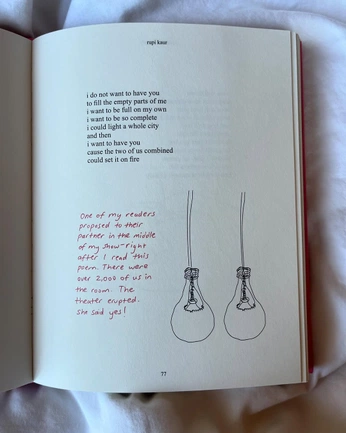 rupi kaur
i do not want to have you
to fill the empty parts of me
i want to be full on my own
i want to be so complete
i could light a whole city
and then
i want to have you
cause the two of us combined
could set it on fire
One of my readers
proposed to their
partner in the middle
of my show-right
after I read this
poem. There were
over 2,000 of us in
the room. The
theater erupted.
She said yes!
77